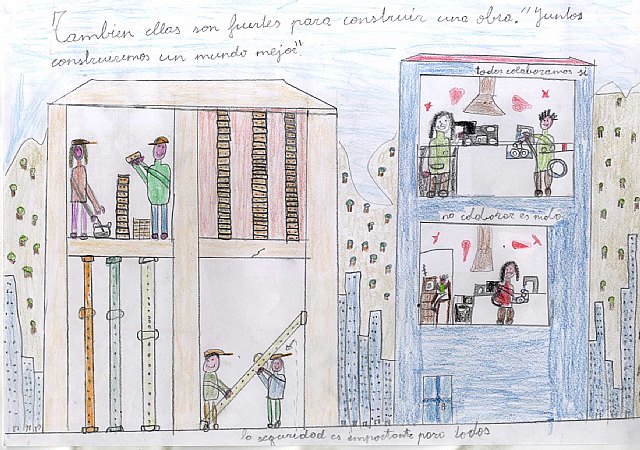 "También ellas son fuertes para construir una obra." "Juntos
construiremos un mundo mejor".
todos colaboramos si
no colaborar es malo
la seguridad es importante para todos